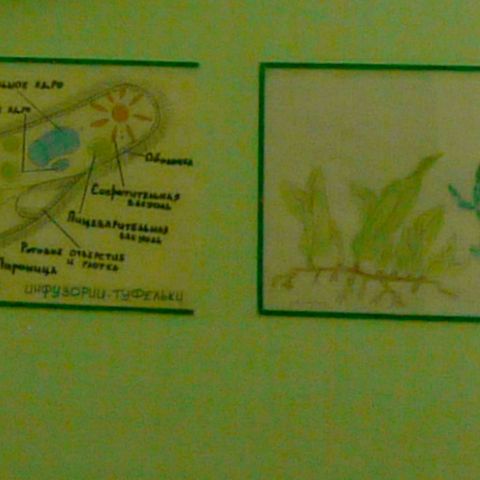 ядро
ядро
Оболочка
Сократительная
вакуоль
Пищеварительная
вакуоль
Ротовое отверстие
и глотка
ИНФУЗОРИИ-ТУФЕЛЬКИ